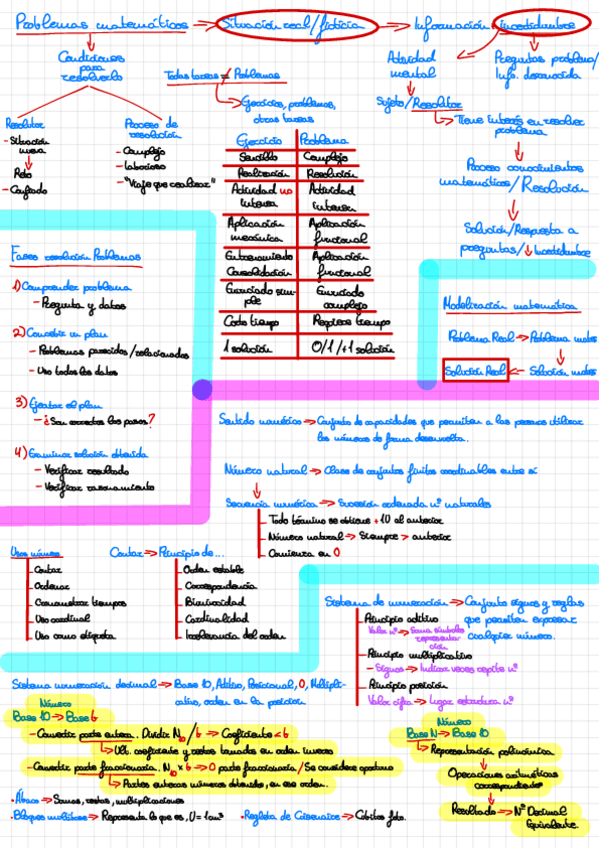 Problemas matemáticos → Situación real/ficticia → Información incertidumbre
Condiciones
para
resolverlo
Resolutor
- Situación
nueva
Reto
- Confiado
Proceso de
resolución
- Complejo
- Laborioso
- "Viaje que realizar"
Todas tareas ≠ Problemas
Ejercicios, problemas,
otras tareas
Actividad
mental
Preguntas problema/
Info. desconocida
Sujeto/Resolutor
Tiene interés en resolver
problema
Proceso conocimientos
matemáticos/Resolución
Solución/Respuesta a
preguntas/↓ Incertidumbre
Ejercicio Problema
Sencillo Complejo
Realización Resolución
Actividad no intensa Actividad intensa
Aplicación mecánica Aplicación funcional
Entrenamiento Consolidación Aplicación funcional
Enunciado simple Enunciado complejo
Corto tiempo Requiere tiempo
1 solución 0/1/+1 solución
Fases resolución Problemas
1) Comprender problema
- Pregunta y datos
2) Concebir un plan
- Problemas parecidos/relacionados
- Uso todos los datos
3) Ejecutar el plan
- ¿Son correctos los pasos?
4) Examinar solución obtenida
- Verificar resultado
- Verificar razonamiento
Modelización matemática
Problema Real → Problema mates
Solución Real ← Solución mates
Sentido numérico → Conjunto de capacidades que permiten a las personas utilizar
los números de forma desenvuelta.
Número natural → Clase de conjuntos finitos coordinables entre sí
Secuencia numérica → Sucesión ordenada nº naturales
Todo término se obtiene +1U al anterior
Número natural → Siempre > anterior
Comienza en 0
Usos número
- Contar
- Ordenar
- Cronometrar tiempos
- Uso cardinal
- Uso como etiqueta
Contar → Principio de...
- Orden estable
- Correspondencia
- Biunivocidad
- Cardinalidad
- Irrelevancia del orden
Sistema de numeración → Conjunto signos y reglas
que permiten expresar
cualquier número.
Principio aditivo
Valor nº → Suma símbolos
representa-
ción
Principio multiplicativo
- Signos → Indicar veces repite nº
Principio posición
Valor cifra → Lugar estructura nº
Sistema numeración decimal → Base 10, Aditivo, Posicional, 0, Multipli-
cativo, orden en la posición
Número
Base 10 → Base b
- Convertir parte entera. Dividir N₁₀/b → Coeficiente < b
Ult. coeficiente y restos tomados en orden inverso
- Convertir parte fraccionaria. N₁₀ × b → 0 parte fraccionaria/Se considere oportuno
Partes enteras números obtenidos, en ese orden.
Número
Base N → Base 10
Representación polinómica
Operaciones aritméticas
correspondientes
Resultado → Nº Decimal
Equivalente.
· Ábaco → Sumas, restas, multiplicaciones
· Bloques multibase → Representa lo que es, U = 1cm³ · Regletas de Cuisenaire →